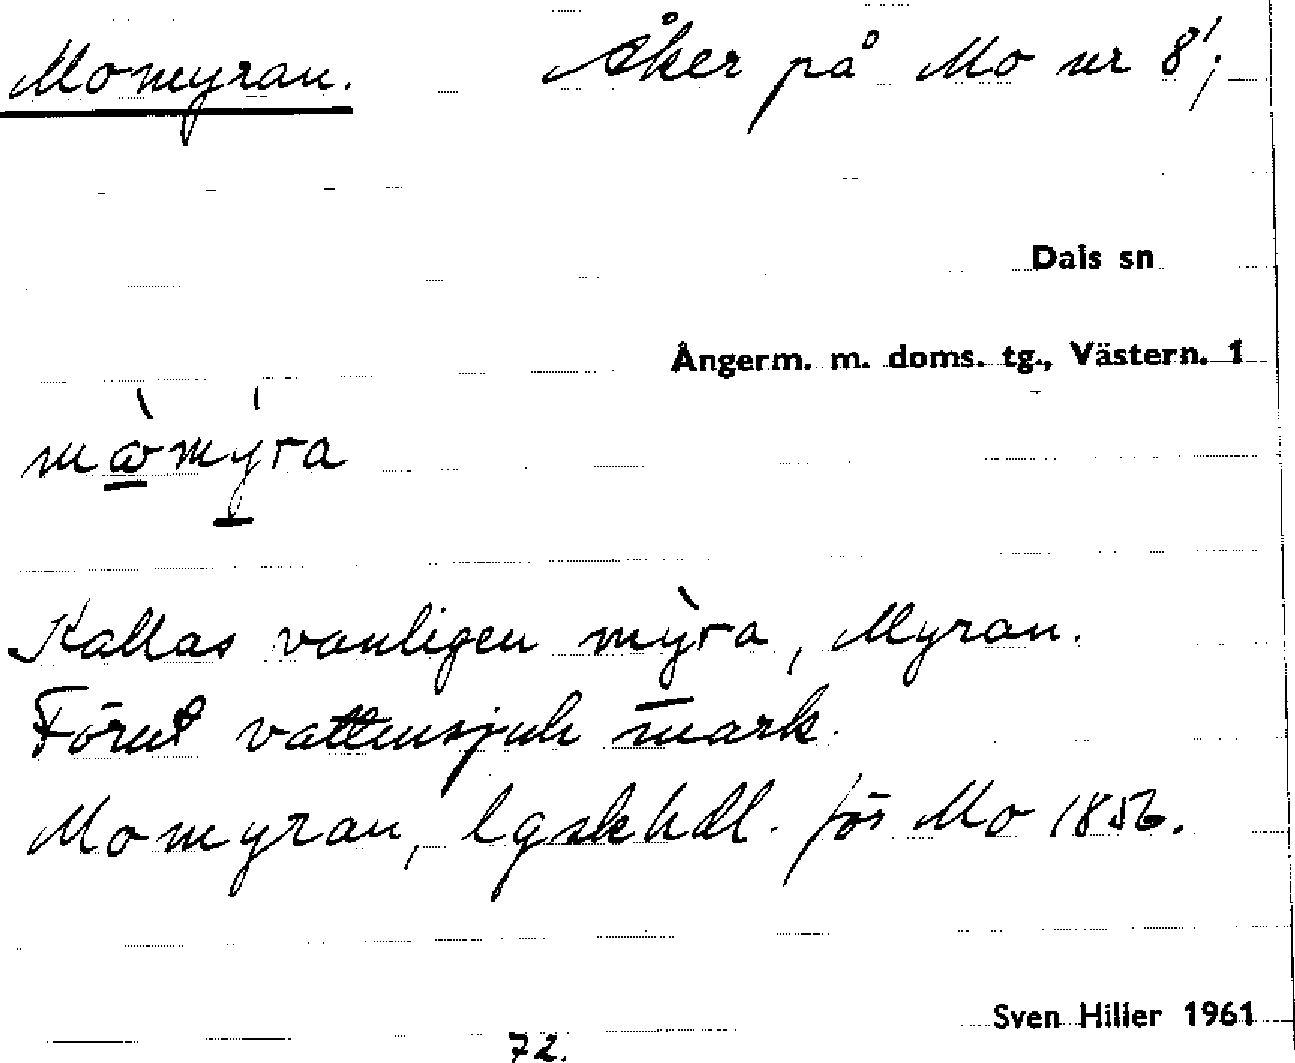 Momyran. Åker på Mo nr 8¹;
Dals sn
Ångerm. m. doms. tg., Västern. 1
Kallas vanligen mỳra, Myran.
Förut vattensjuk mark.
Momyran, lgskhdl. för Mo 1856.
Sven Hiller 1961
72.